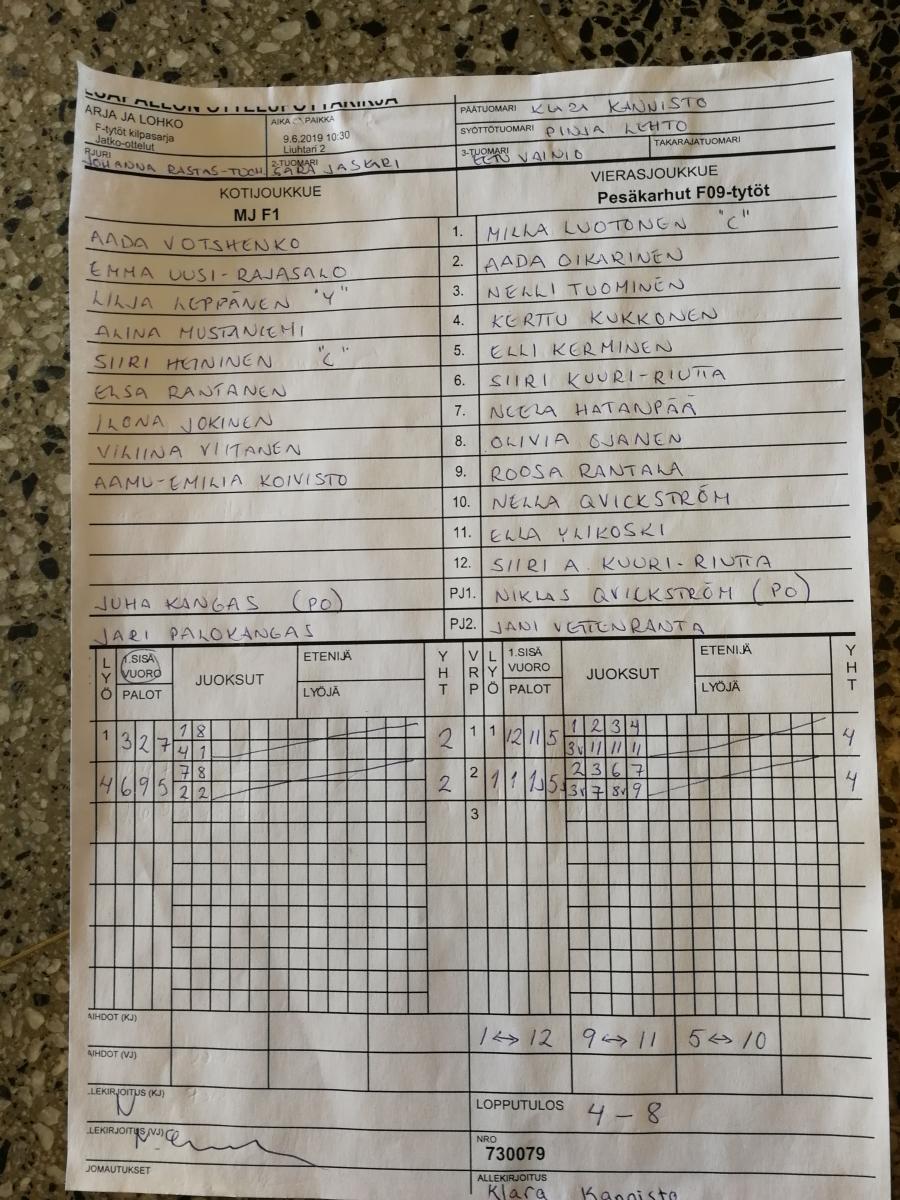 ARJA JA LOHKO
F-tytöt kilpasarja
Jatko-ottelut
AIKA PAIKKA
9.6.2019 10:30
Liuhtari 2
PÄÄTUOMARI KLARA KANNISTO
SYÖTTÖTUOMARI PINJA LEHTO
RJURI JOHANNA RASTAS-TUOH
2-TUOMARI SARA JASKARI
3-TUOMARI EETU VAINIO
TAKARAJATUOMARI
KOTIJOUKKUE
MJ F1
VIERASJOUKKUE
Pesäkarhut F09-tytöt
AADA VOTSHENKO 1. MILLA LUOTONEN "C"
EMMA UUSI-RAJASALO 2. AADA OIKARINEN
LILJA LEPPÄNEN "Y" 3. NELLI TUOMINEN
ALINA MUSTANIEMI 4. KERTTU KUKKONEN
SIIRI HEININEN "C" 5. ELLI KERMINEN
ELSA RANTANEN 6. SIIRI KUURI-RIUTTA
ILONA JOKINEN 7. NEELA HATANPÄÄ
VILIINA VIITANEN 8. OLIVIA OJANEN
AAMU-EMILIA KOIVISTO 9. ROOSA RANTALA
10. NELLA QVICKSTRÖM
11. ELLA YLIKOSKI
12. SIIRI A. KUURI-RIUTTA
JUHA KANGAS (PO) PJ1. NIKLAS QVICKSTRÖM (PO)
JARI PALOKANGAS PJ2. JANI VETTENRANTA
LYÖ 1.SISÄ VUORO PALOT JUOKSUT ETENIJÄ LYÖJÄ YHT VRP LYÖ 1.SISÄ VUORO PALOT JUOKSUT ETENIJÄ LYÖJÄ YHT
1 3 2 7 1 8 2 1 1 12 11 5 1 2 3 4 4
4 1 3v 11 11 11
4 6 9 5 7 8 2 2 1 1 2 3 6 7 4
2 2 3v 7 8v 9
3
AIHDOT (KJ) 1 ↔ 12 9 ↔ 11 5 ↔ 10
AIHDOT (VJ)
LEKIRJOITUS (KJ)
LOPPUTULOS 4 – 8
LEKIRJOITUS (VJ)
NRO
730079
JOMAUTUKSET
ALLEKIRJOITUS
Klara Kannisto